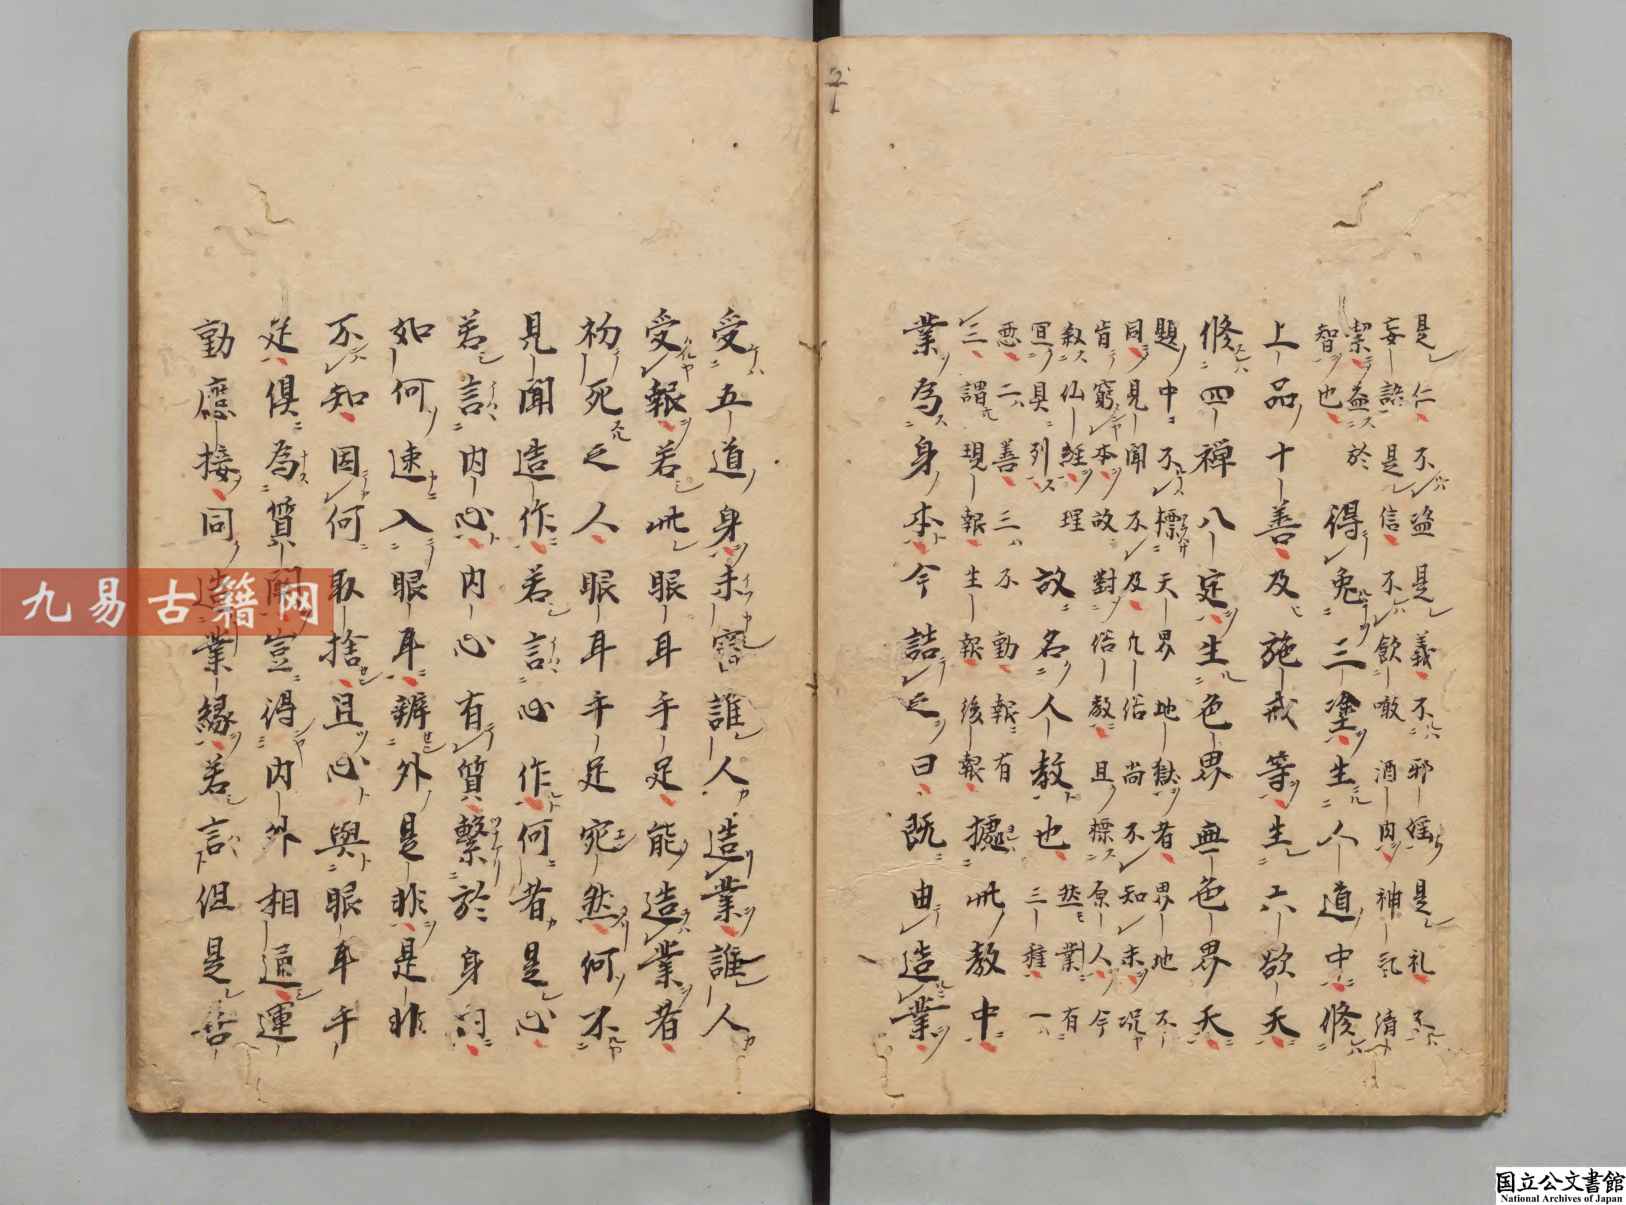 是仁不盜是義不邪婬是礼不
妄語是信不飲噉酒肉神氣清
潔益於
智也
得免三塗生人道中修
上品十善及施戒等生六欲天
修四禪八定生色界無色界天
題中不標天界地獄者界地不
同見聞不及凡俗尚不知末況
肯窮本故對俗教且標原人今
叙仏經理
宜具列
故名人教也
然業有
三種一
悪二善三不動報有
三謂現報生報後報
據此教中
業為身本今詰之曰既由造業
受五道身未審誰人造業誰人
受報若此眼耳手足能造業者
初死之人眼耳手足宛然何不
見聞造作若言心作何者是心
若言肉心肉心有質繫於身内
如何速入眼耳辨外是非是非
不知因何取捨且心與眼耳手
足俱為質閡豈得内外相通運
動應接同造業緣若言但是喜
九易古籍网
国立公文書館
National Archives of Japan